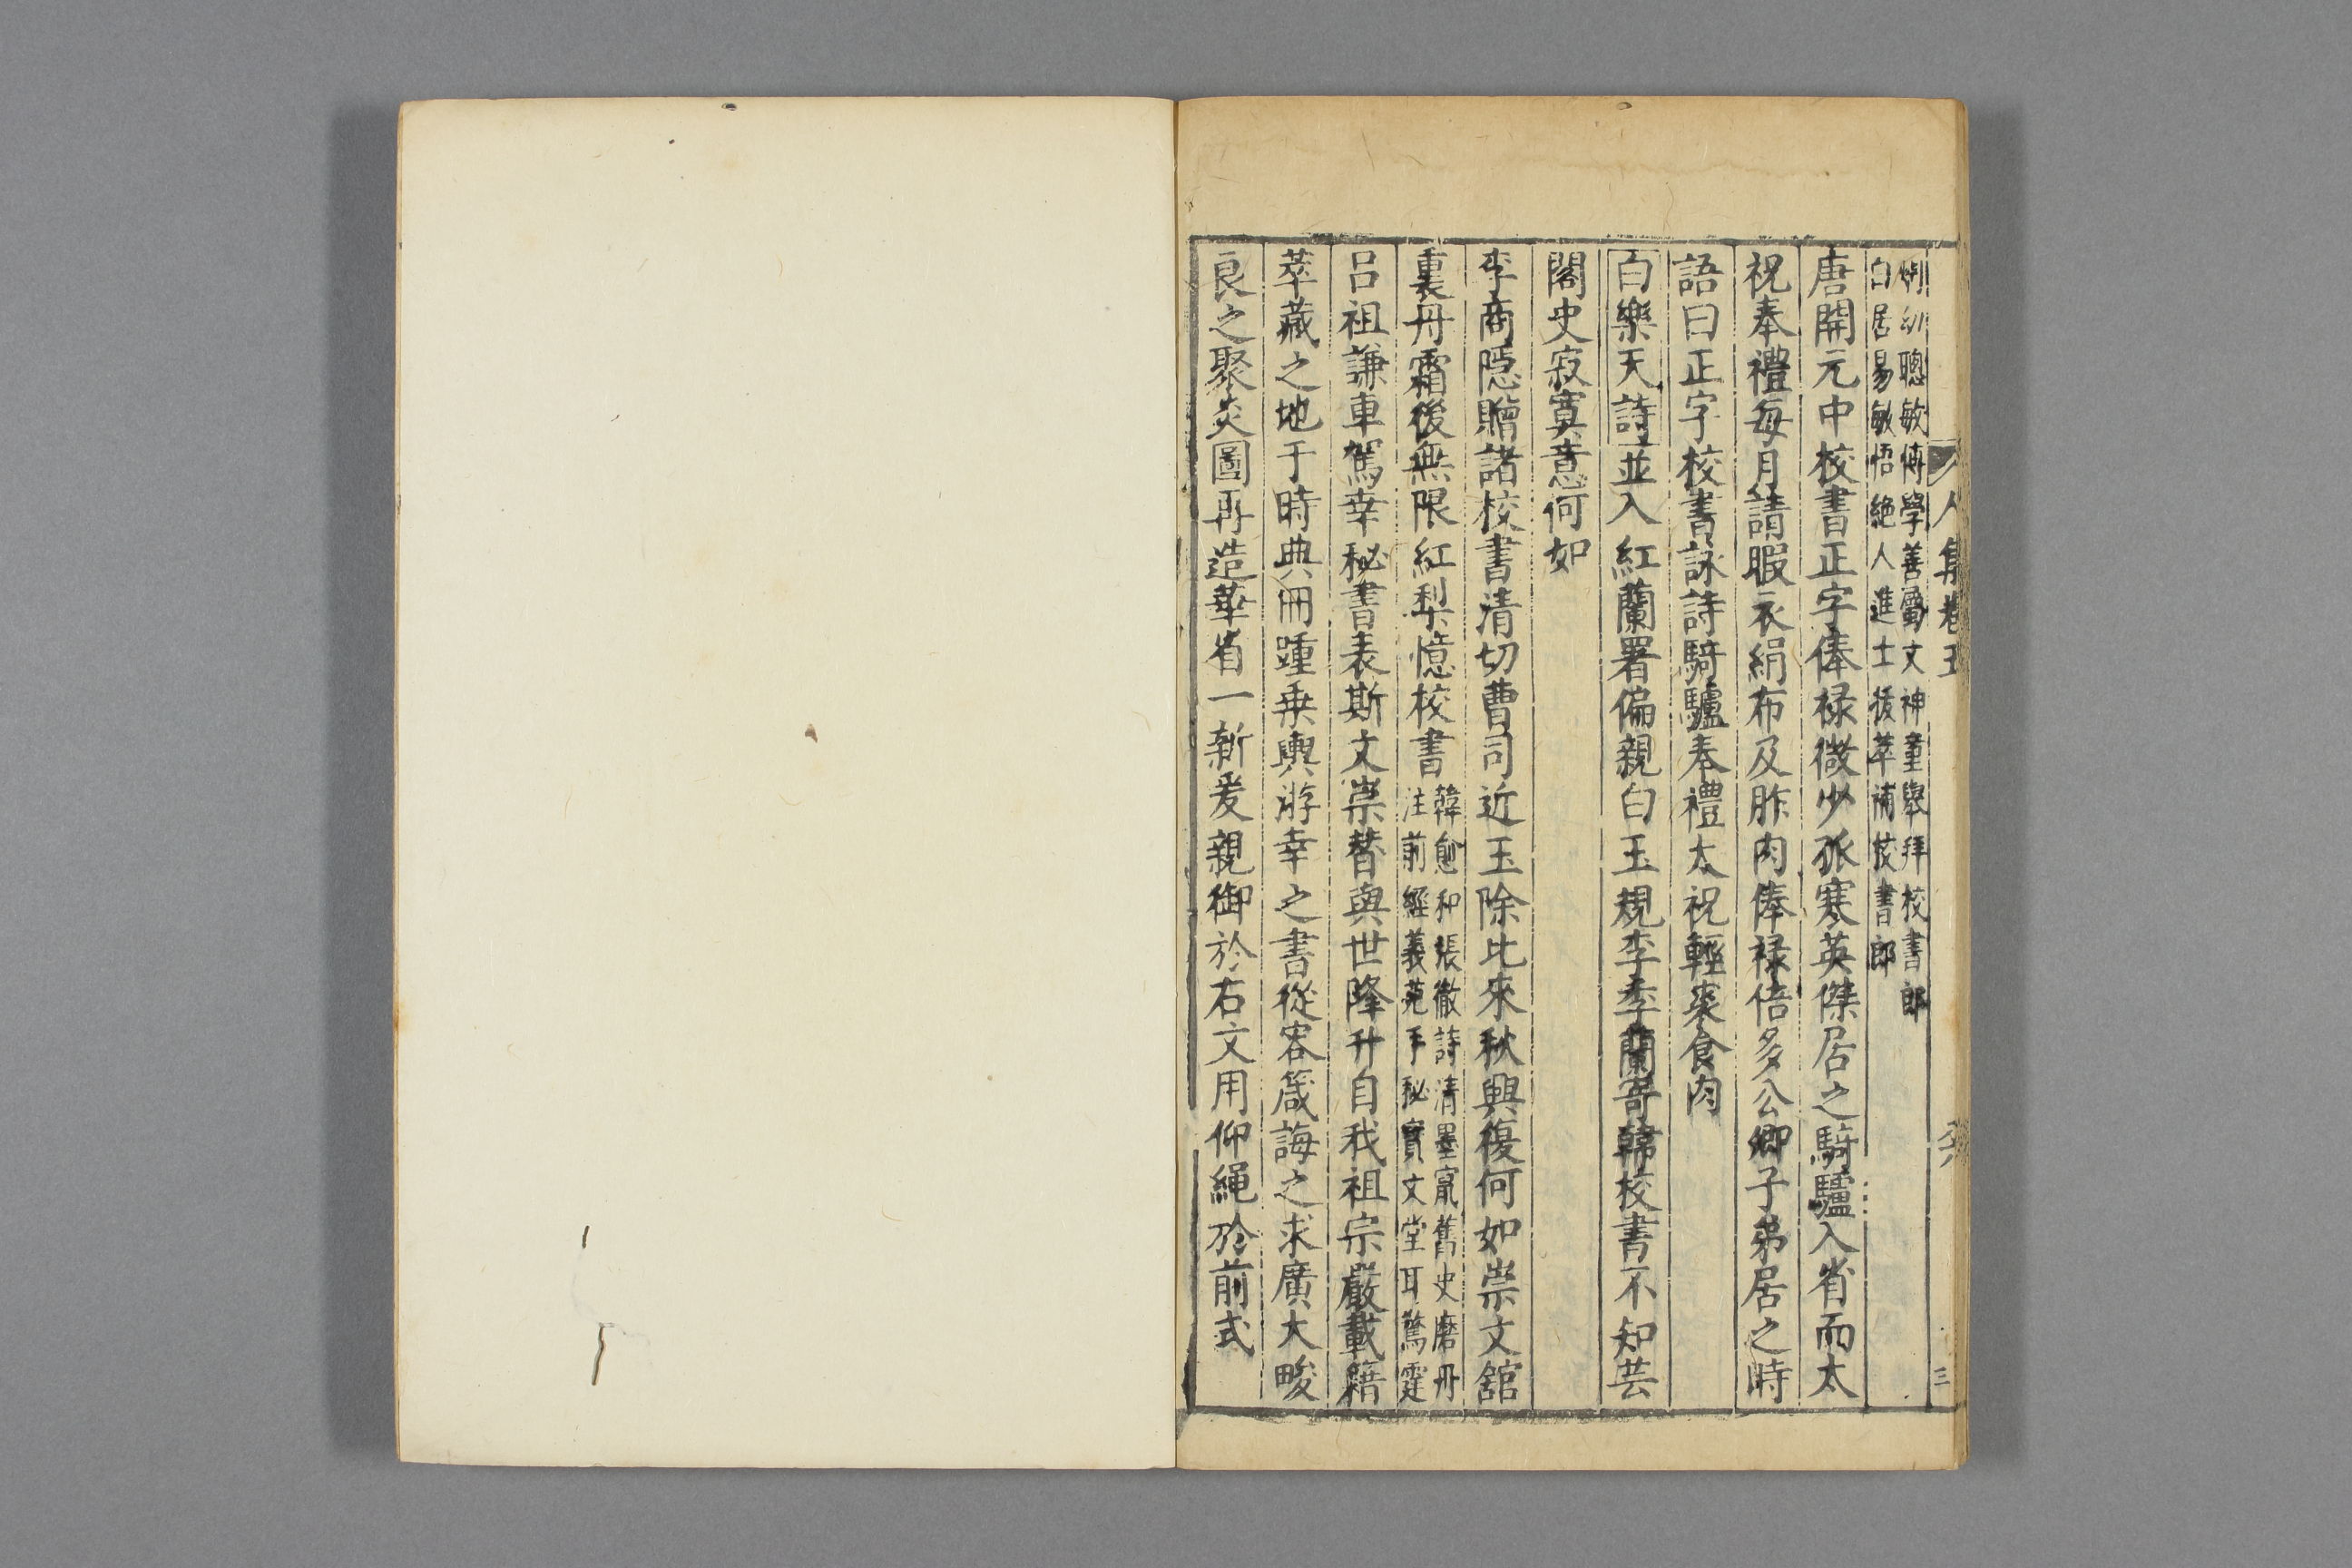 人集卷五
三
炯幼聰敏博學善屬文神童舉拜校書郎
白居易敏悟絶人進士拔萃補校書郎
唐開元中校書正字俸禄微少孤寒英傑居之騎驢入省而太
祝奉禮每月請暇衣絹布及胙肉俸禄倍多公卿子弟居之時
語曰正字校書詠詩騎驢奉禮太祝輕裘食肉
白樂天詩並入紅蘭署偏親白玉規李季蘭寄韓校書不知芸
閣史寂寞意何如
李商隱贈諸校書清切曹司近玉除比來秋興復何如崇文舘
裏丹霜後無限紅梨憶校書
韓愈和張徹詩清墨竄舊史磨丹
注前經義苑手秘寶文堂耳驚霆
吕祖謙車駕幸秘書表斯文崇替與世降升自我祖宗嚴載籍
萃藏之地于時典冊踵乗輿游幸之書從容箴誨之求廣大畯
良之聚炎圖再造華省一新爰親御於右文用仰繩於前式